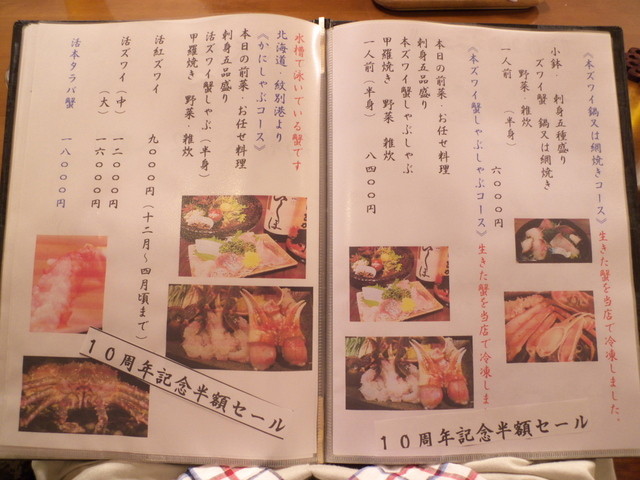 《本ズワイ鍋又は網焼きコース》生きた蟹を当店で冷凍しました。
小鉢・刺身五種盛り
ズワイ蟹 鍋又は網焼き
野菜 雑炊
一人前 (半身)
六〇〇〇円
《本ズワイ蟹しゃぶしゃぶコース》生きた蟹を当店で冷凍しま
本日の前菜・お任せ料理
刺身五品盛り
本ズワイ蟹しゃぶしゃぶ
甲羅焼き 野菜 雑炊
一人前(半身) 八四〇〇円
10周年記念半額セール
水槽で泳いでいる蟹です
北海道・紋別港より
《かにしゃぶコース》
本日の前菜・お任せ料理
刺身五品盛り
活ズワイ蟹しゃぶ(半身)
甲羅焼き 野菜・雑炊
活紅ズワイ 九〇〇〇円(十二月〜四月頃まで)
活ズワイ(中) 一二〇〇〇円
(大) 一六〇〇〇円
活本タラバ蟹 一八〇〇〇円
10周年記念半額セール